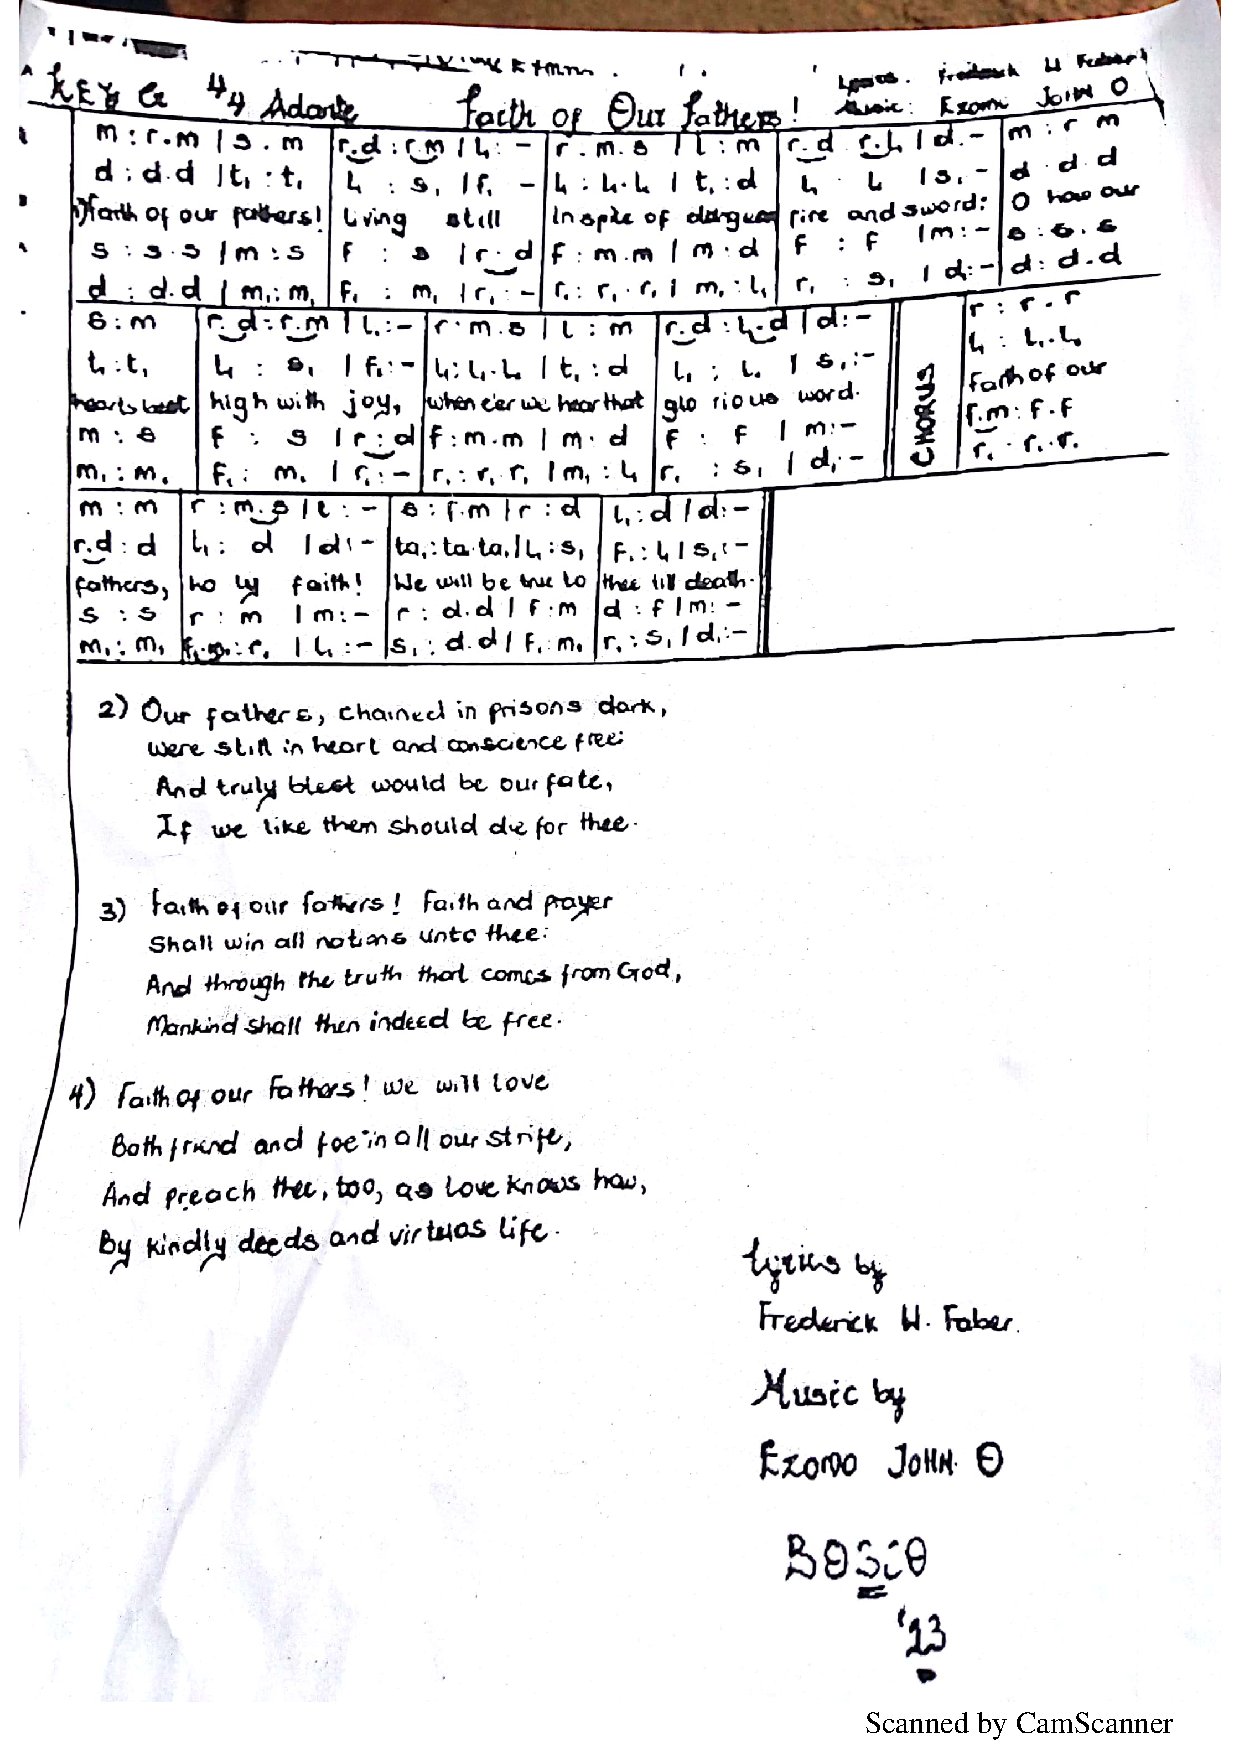 Lyrics: Frederick W Faber
KEY G 4/4 Adante Faith of Our Fathers! Music: Ezomo JOHN O
m : r.m | s . m r.d : r.m | l, : - r . m . s | l : m r.d r.l, | d . - m : r m
d : d.d | t, : t, l, : s, | f, - l, : l, . l, | t, : d l, l, | s, - d . d . d
1) Faith of our fathers! living still In spite of dungeon fire and sword: O how our
s : s.s | m : s f : s | r . d f : m.m | m . d f : f | m : - s : s . s
d : d.d | m, : m, f, : m, | r, : - r, : r, . r, | m, : l, r, : s, | d, : - d : d.d
s : m r.d : r.m | l, : - r . m . s | l : m r.d : l,.d | d : - r : r . r
t, : t, l, : s, | f, : - l, : l, . l, | t, : d l, : l, | s, : - l, : l, . l,
hearts beat high with joy, when e'er we hear that glo rious word. CHORUS Faith of our
m : s f : s | r : d f : m.m | m . d f : f | m : - f.m : f . f
m, : m, f, : m, | r, : - r, : r, r, | m, : l, r, : s, | d, : - r, . r, . r,
m : m r : m.s | l : - s : f.m | r : d l, : d | d : -
r.d : d l, : d | d : - ta, : ta, ta, | l, : s, f, : l, | s, : -
fathers, ho ly faith! We will be true to thee till death.
s : s r : m | m : - r : d.d | f : m d : f | m : -
m, : m, f,.m, : r, | l, : - s, : d.d | f, : m, r, : s, | d, : -
2) Our fathers, chained in prisons dark,
were still in heart and conscience free:
And truly blest would be our fate,
If we like them should die for thee.
3) Faith of our fathers! Faith and prayer
Shall win all nations unto thee:
And through the truth that comes from God,
Mankind shall then indeed be free.
4) Faith of our Fathers! we will love
Both friend and foe in all our strife,
And preach thee, too, as love knows how,
By kindly deeds and virtuas life.
Lyrics by
Frederick W. Faber.
Music by
Ezomo JOHN. O
BOSCO
'23
Scanned by CamScanner